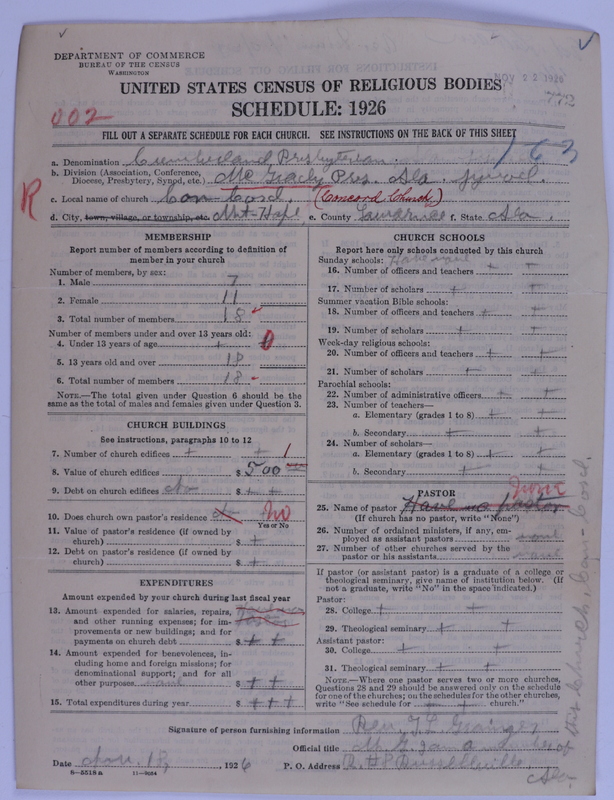 DEPARTMENT OF COMMERCE
BUREAU OF THE CENSUS
WASHINGTON
NOV 22 1926
UNITED STATES CENSUS OF RELIGIOUS BODIES
SCHEDULE: 1926
002
773
FILL OUT A SEPARATE SCHEDULE FOR EACH CHURCH. SEE INSTRUCTIONS ON THE BACK OF THIS SHEET
163
a. Denomination Cumberland Presbyterian.
b. Division (Association, Conference,
Diocese, Presbytery, Synod, etc.) Mc Grady Pres. Ala.
R
c. Local name of church Con-Cord. (Concord Church)
d. City, town, village, or township, etc. Mt-Hope e. County Lawrence f. State Ala.
MEMBERSHIP
Report number of members according to definition of
member in your church
Number of members, by sex:
1. Male 7
2. Female 11
3. Total number of members 18
Number of members under and over 13 years old:
4. Under 13 years of age + 0
5. 13 years old and over 18
6. Total number of members 18
NOTE.—The total given under Question 6 should be the
same as the total of males and females given under Question 3.
CHURCH BUILDINGS
See instructions, paragraphs 10 to 12
7. Number of church edifices + + 1
8. Value of church edifices $ 500
9. Debt on church edifices $ + +
10. Does church own pastor's residence No
Yes or No
11. Value of pastor's residence (if owned by
church) $ +
12. Debt on pastor's residence (if owned by
church) $ +
EXPENDITURES
Amount expended by your church during last fiscal year
13. Amount expended for salaries, repairs,
and other running expenses; for im-
provements or new buildings; and for
payments on church debt $ + +
14. Amount expended for benevolences, in-
cluding home and foreign missions; for
denominational support; and for all
other purposes $ + +
15. Total expenditures during year $ + + +
CHURCH SCHOOLS
Report here only schools conducted by this church
Sunday schools: Have none
16. Number of officers and teachers + +
17. Number of scholars + +
Summer vacation Bible schools:
18. Number of officers and teachers + +
19. Number of scholars + +
Week-day religious schools:
20. Number of officers and teachers + +
21. Number of scholars + +
Parochial schools:
22. Number of administrative officers + +
23. Number of teachers—
a. Elementary (grades 1 to 8) + +
b. Secondary + +
24. Number of scholars—
a. Elementary (grades 1 to 8) + +
b. Secondary + +
PASTOR
None
25. Name of pastor Have no pastor
(If church has no pastor, write "None")
26. Number of ordained ministers, if any, em-
ployed as assistant pastors none
27. Number of other churches served by the
pastor or his assistants
If pastor (or assistant pastor) is a graduate of a college or
theological seminary, give name of institution below. (If
not a graduate, write "No" in the space indicated.)
Pastor:
28. College + +
29. Theological seminary + +
Assistant pastor:
30. College + +
31. Theological seminary + +
NOTE.—Where one pastor serves two or more churches,
Questions 28 and 29 should be answered only on the schedule
for one of the churches; on the schedules for the other churches,
write "See schedule for + + church."
Signature of person furnishing information Rev. T. L. Grainger
Official title
of this Church, Con-Cord.
Date Nov. 18, 1926 P. O. Address R. #2 Russellville
Ala.
8—5518 a 11—9684